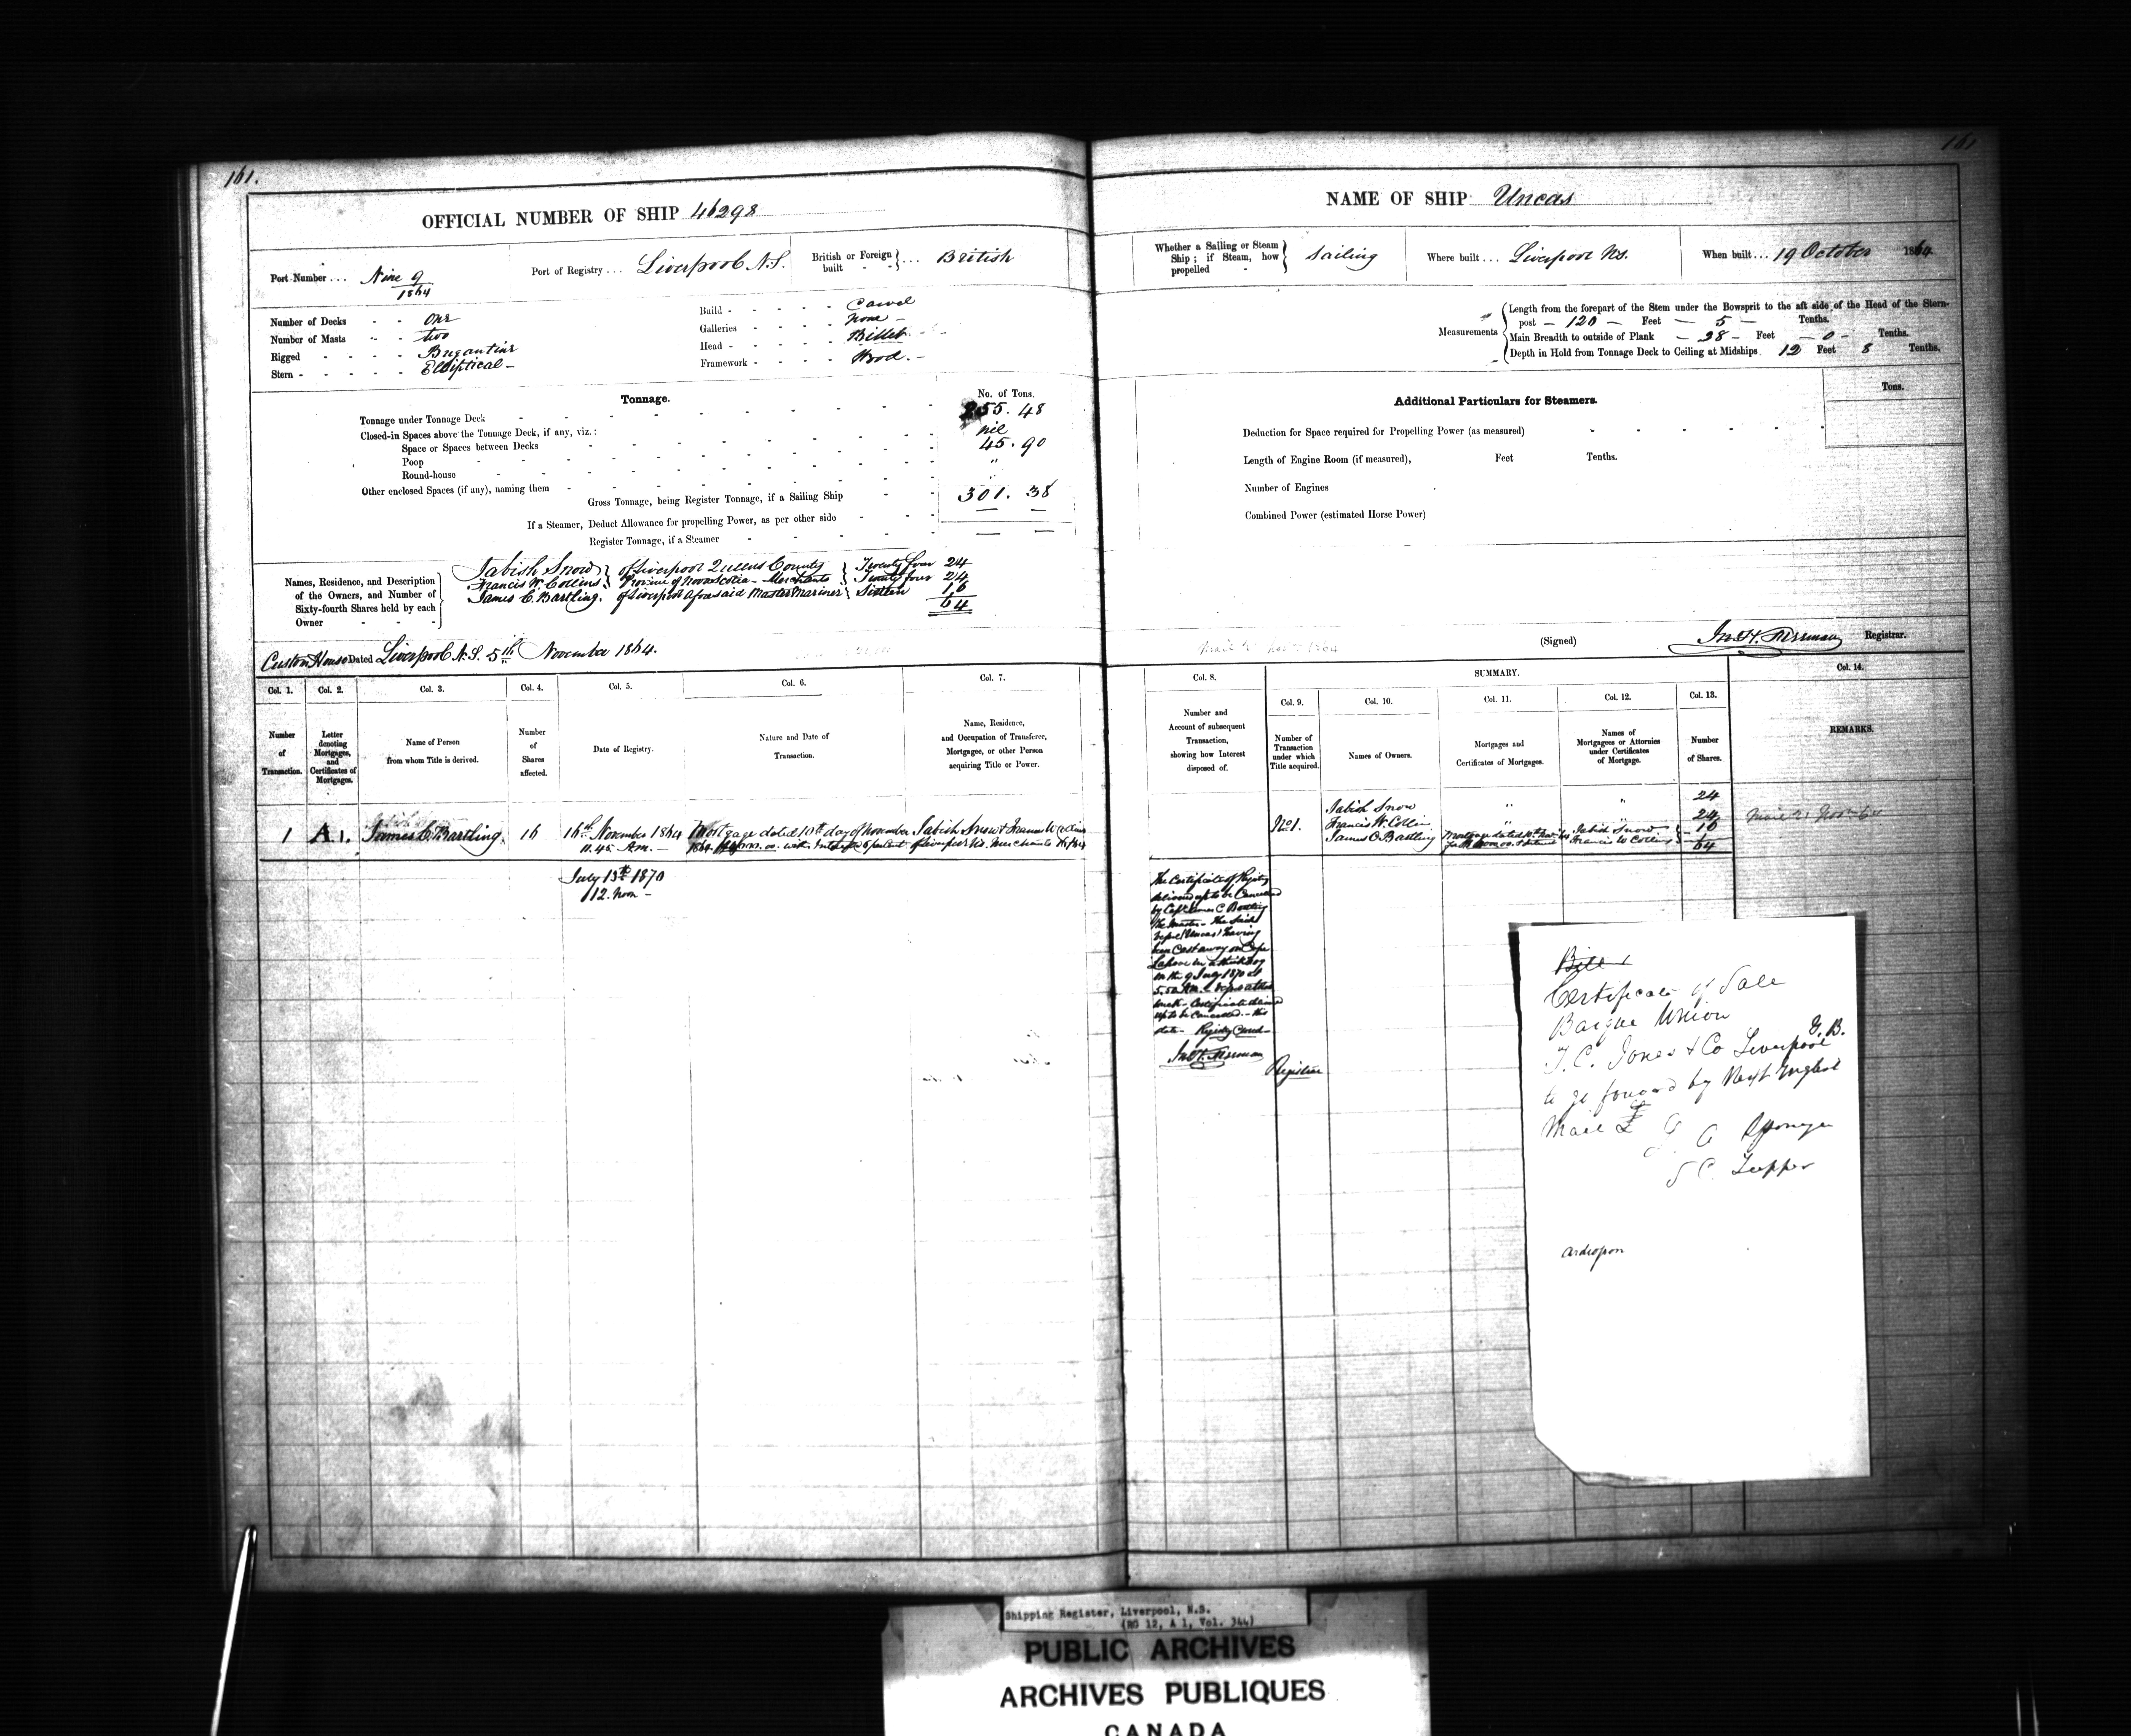 161.
OFFICIAL NUMBER OF SHIP 46298
Port Number ... Nine 9
1864
Port of Registry ... Liverpool N.S.
British or Foreign built - - } ... British
Number of Decks - - One
Number of Masts - - two
Rigged - - - - Brigantine
Stern - - - - - Elliptical -
Build - - - - - Carvel
Galleries - - - - none -
Head - - - - - Billet
Framework - - - - Wood. -
Tonnage.
No. of Tons.
Tonnage under Tonnage Deck 255. 48
Closed-in Spaces above the Tonnage Deck, if any, viz.:
Space or Spaces between Decks nil
Poop 45. 90
Round-house "
Other enclosed Spaces (if any), naming them
Gross Tonnage, being Register Tonnage, if a Sailing Ship 301. 38
If a Steamer, Deduct Allowance for propelling Power, as per other side
Register Tonnage, if a Steamer
Names, Residence, and Description of the Owners, and Number of Sixty-fourth Shares held by each Owner
Jabish Snow } of Liverpool Queens County } Twenty four 24
Francis W. Collins } Province of Nova Scotia - Merchants } Twenty four 24
James C. Bartling. of Liverpool aforesaid Master Mariner } Sixteen 16
64
Custom House Dated Liverpool N.S. 5th November 1864.
Col. 1. Col. 2. Col. 3. Col. 4. Col. 5. Col. 6. Col. 7.
Number of Transaction.
Letter denoting Mortgages, and Certificates of Mortgages.
Name of Person from whom Title is derived.
Number of Shares affected.
Date of Registry.
Nature and Date of Transaction.
Name, Residence, and Occupation of Transferee, Mortgagee, or other Person acquiring Title or Power.
1 A 1. James C. Bartling. 16 16th November 1864 Mortgage dated 10th day of November Jabish Snow & Francis W Collins
11.45 A.m. - 1864 with Interest 6 percent of Liverpool N.S. Merchants
July 13th 1870
12. noon -
161
NAME OF SHIP Uncas
Whether a Sailing or Steam Ship; if Steam, how propelled - } Sailing
Where built ... Liverpool N.S.
When built ... 19 October 1864.
Measurements
Length from the forepart of the Stem under the Bowsprit to the aft side of the Head of the Stern-
post - 120 - Feet - 5 - Tenths.
Main Breadth to outside of Plank - 28 - Feet - 0 - Tenths.
Depth in Hold from Tonnage Deck to Ceiling at Midships 12 Feet 8 Tenths.
Additional Particulars for Steamers.
Tons.
Deduction for Space required for Propelling Power (as measured)
Length of Engine Room (if measured), Feet Tenths.
Number of Engines
Combined Power (estimated Horse Power)
(Signed) Registrar.
Col. 8. SUMMARY. Col. 14.
Col. 9. Col. 10. Col. 11. Col. 12. Col. 13.
Number and Account of subsequent Transaction, showing how Interest disposed of.
Number of Transaction under which Title acquired.
Names of Owners.
Mortgages and Certificates of Mortgages.
Names of Mortgagees or Attornies under Certificates of Mortgage.
Number of Shares.
REMARKS.
Jabish Snow " " 24
No 1. Francis W. Collins " " 24
James C Bartling Mortgage dated 10th Jabish Snow 16
Francis W Collins 64
The Certificate of Registry
delivered up to be Cancelled
by Capt James C Bartling
the Master - the said
Vessel (Uncas) having
been Cast away on Cape
in a thick fog
on the 9 July 1870 at
5,50 A.M.
wreck - Certificate
up to be Cancelled. - this
date - Registry Closed -
Registrar
Bill
Certificate of Sale
Barque Union
T. C. Jones & Co Liverpool G.B.
to go forward by Next English
Mail
S C. Tupper
Shipping Register, Liverpool, N.S.
(RG 12, A 1, Vol. 344)
PUBLIC ARCHIVES
ARCHIVES PUBLIQUES
CANADA